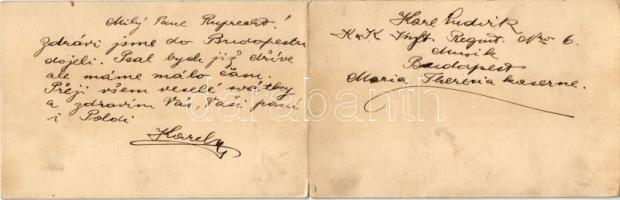 Milý Pane Ruprecht!
zdrávi jsme do Budapestu
dojeli. Psal bych již dříve
ale máme málo času.
Přeji všem veselé svátky
a zdravím Vás, Vaši paní
i Poldi
Karel
Karl Ludvik
K u K Inft. Regmt. Nro 6.
Musik
Budapest
Maria Theresia kaserne.
darabanth